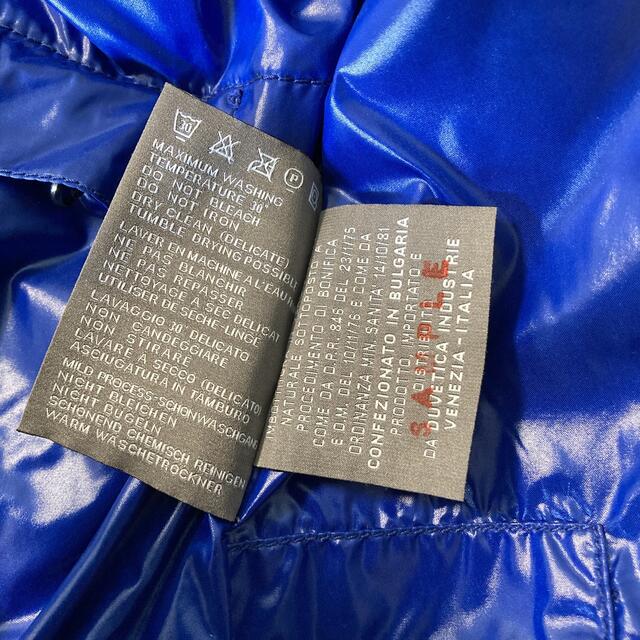 30
MAXIMUM WASHING
TEMPERATURE 30°
DO NOT BLEACH
DO NOT IRON
DRY CLEAN (DELICATE)
TUMBLE DRYING POSSIBLE
LAVER EN MACHINE A L'EAU
NE PAS BLANCHIR
NE PAS REPASSER
NETTOYAGE A SEC DELICAT
UTILISER DE SÈCHE-LINGE
LAVAGGIO 30° DELICATO
NON CANDEGGIARE
NON STIRARE
LAVARE A SECCO (DELICATO)
ASCIUGATURA IN TAMBURO
MILD PROCESS-SCHONWASCHGANG
NICHT BLICHEN
NICHT BUGELN
SCHONEND CHEMISCH REINIGEN
WARM WASCHETROCKNER
NATURALE SOTTOPOSTE A
PROCEDIMENTO DI BONIFICA
COME DA D.P.R. 845 DEL 23/7/75
E D.M. DEL 10/11/76 E COME DA
ORDINANZA MIN. SANITA' 14/10/81
CONFEZIONATO IN BULGARIA
PRODOTTO, IMPORTATO E
DISTRIBUITO
DA DUVETICA INDUSTRIE
VENEZIA - ITALIA
SAMPLE